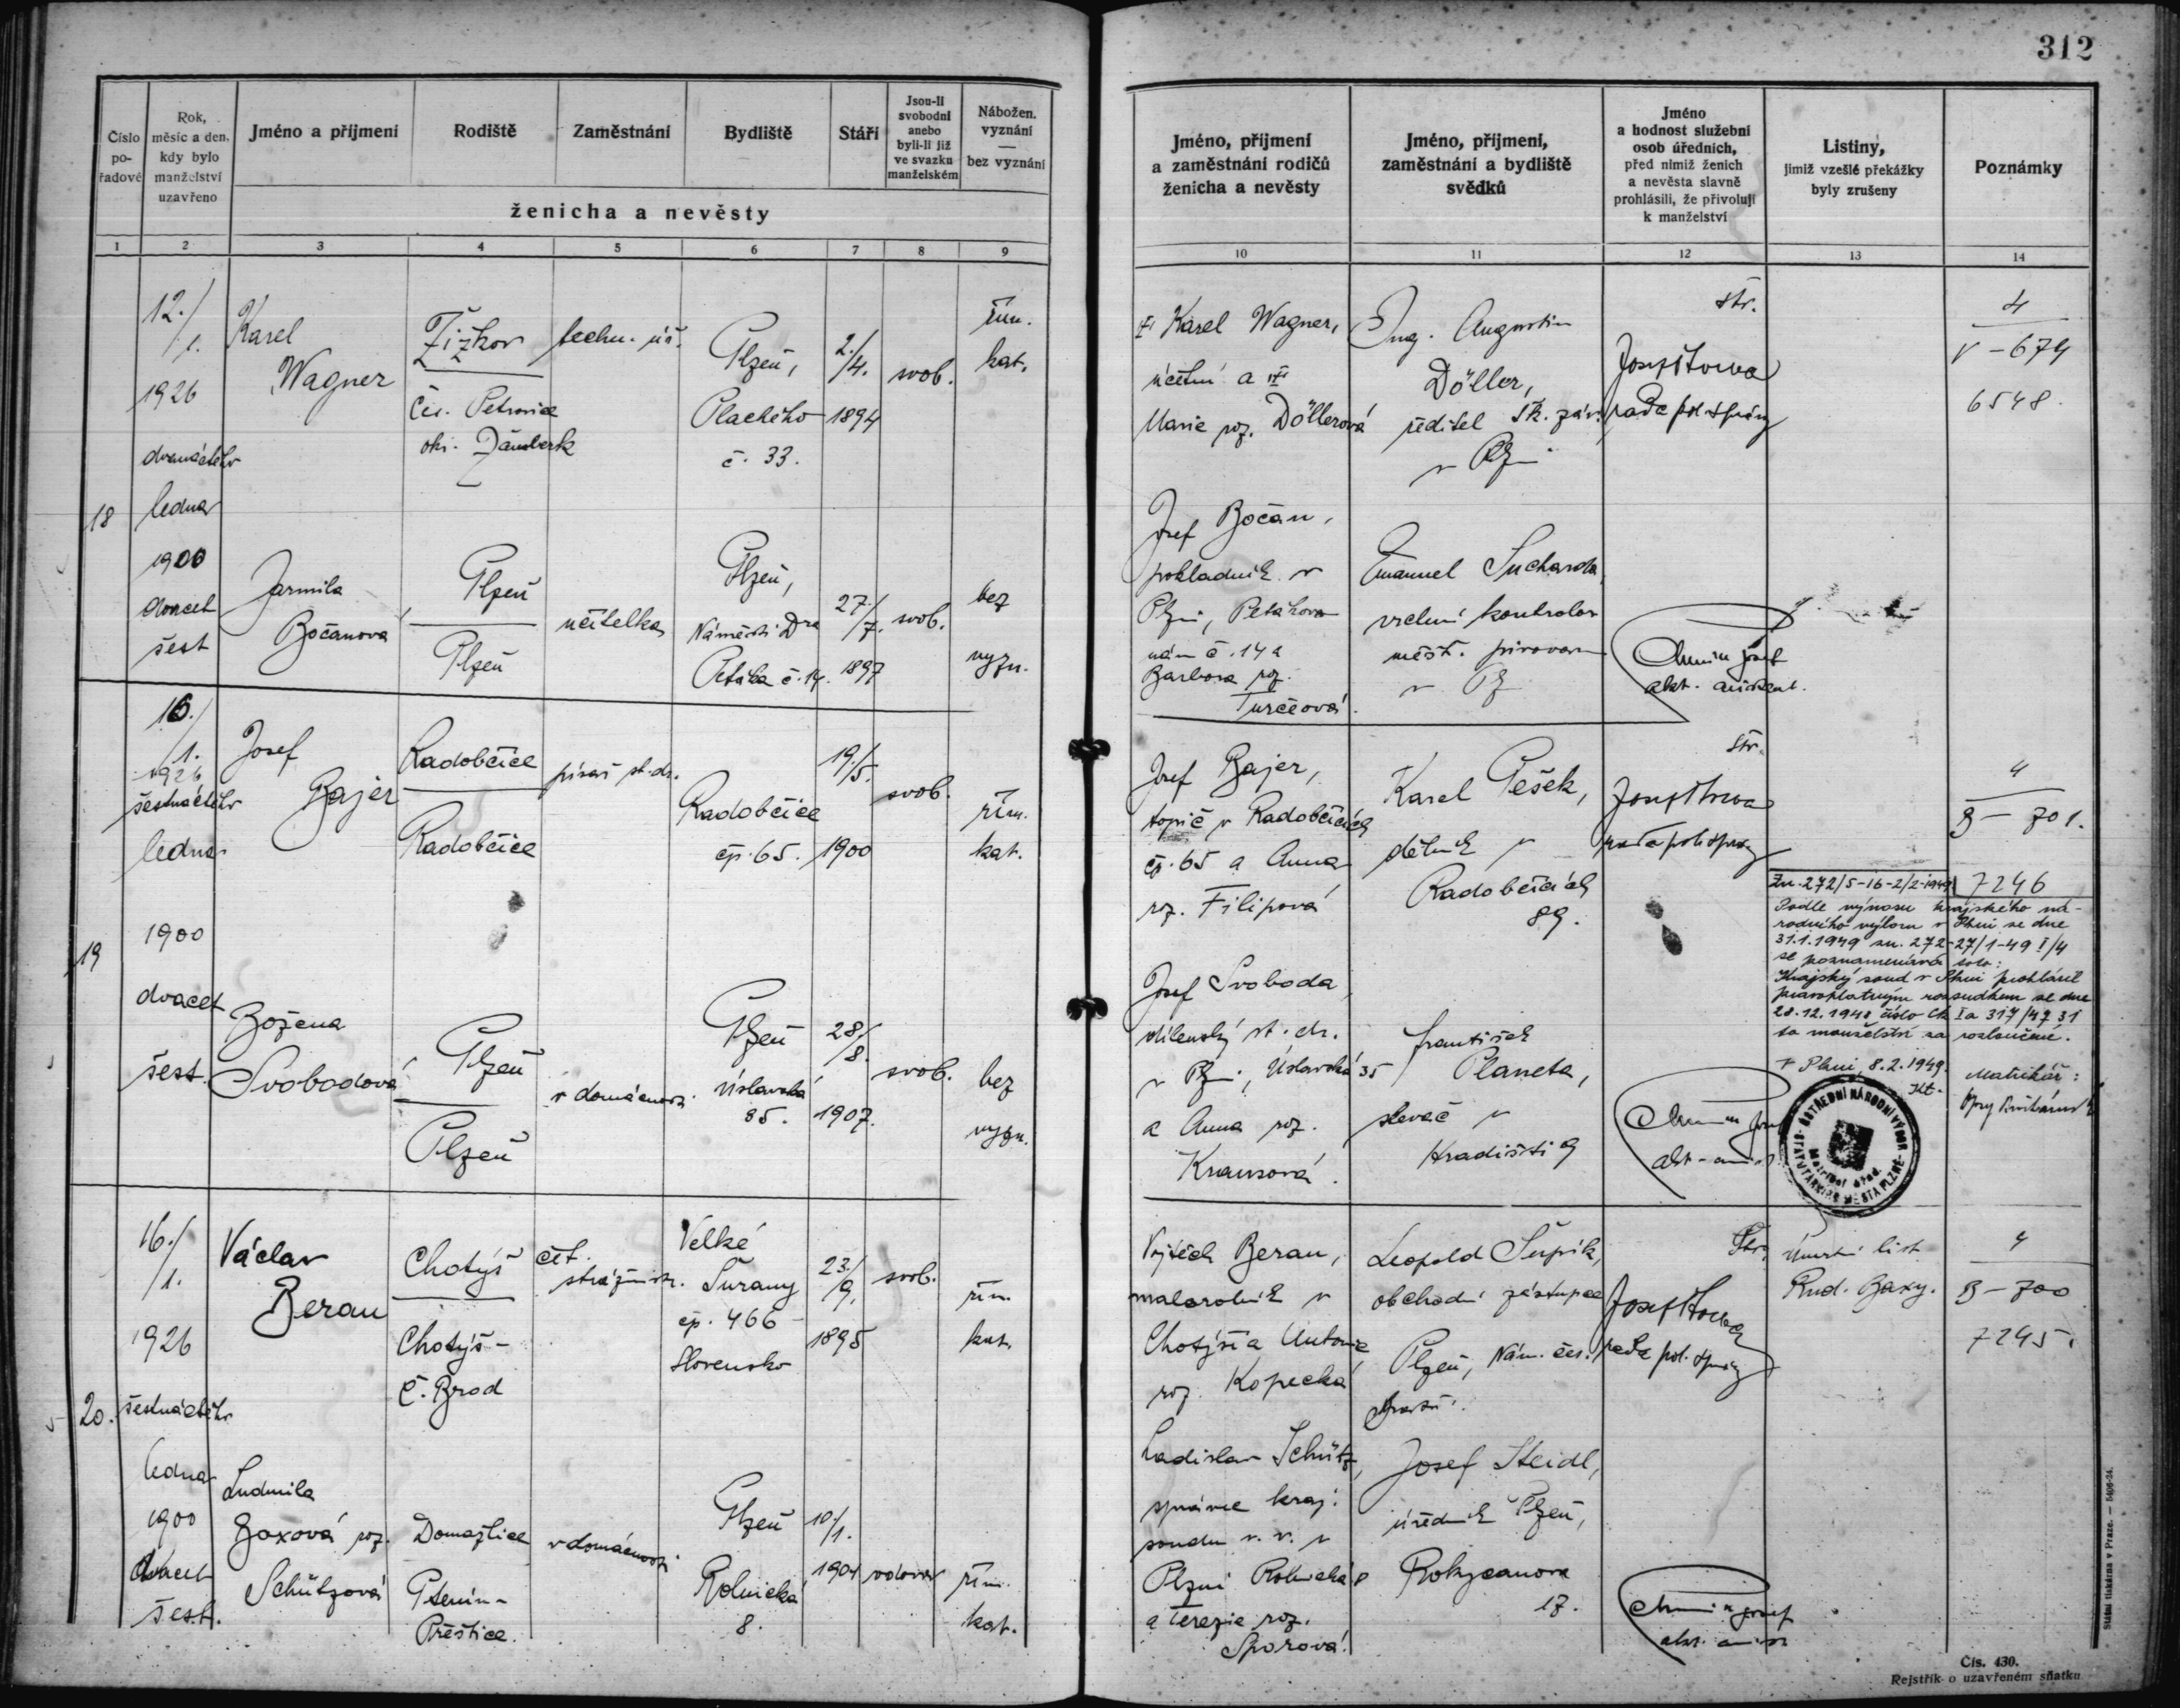 312
Číslo
po-
řadové
Rok,
měsíc a den,
kdy bylo
manželství
uzavřeno
Jméno a příjmení
Rodiště
Zaměstnání
Bydliště
Stáří
Jsou-li
svobodní
anebo
byli-li již
ve svazku
manželském
Nábožen.
vyznání
—
bez vyznání
ženicha a nevěsty
1 2 3 4 5 6 7 8 9
Jméno, příjmení
a zaměstnání rodičů
ženicha a nevěsty
Jméno, příjmení,
zaměstnání a bydliště
svědků
Jméno
a hodnost služební
osob úředních,
před nimiž ženich
a nevěsta slavně
prohlásili, že přivolují
k manželství
Listiny,
jimiž vzešlé překážky
byly zrušeny
Poznámky
10 11 12 13 14
18
12./
1.
1926
dvanáctého
ledna
1900
dvacet
šest
Karel
Wagner
Žižkov
Čes. Petrovice
okr. Žamberk
techn. úř.
Plzeň,
Plachého
č. 33.
2./
4.
1894
svob.
řím.
kat.
Jarmila
Bočanová
Plzeň
Plzeň
učitelka
Plzeň,
Náměstí Dra
Petáka č. 14.
27./
7.
1897
svob.
bez
vyzn.
Karel Wagner,
účetní a
Marie roz. Döllerová
Ing. Augustin
Döller,
ředitel Šk. záv.
v Plzni
str.
rada pol. správy
4
V - 679
6548.
Josef Bočan,
pokladník v
Plzni, Petákovo
nám č. 14 a
Barbora roz.
Turčeová.
Emanuel Sucharda,
vrchní kontrolor
měšť. pivovaru
v Pl
Josef
akt. asistent.
19
16./
1.
1926
šestnáctého
ledna
1900
dvacet
šest.
Josef
Bajer
Radobčice
Radobčice
písař st. dr.
Radobčice
čp. 65.
19./
5.
1900
svob.
řím.
kat.
Božena
Svobodová
Plzeň
Plzeň
v domácnosti
Plzeň
Úslavská
35.
28./
8.
1907.
svob.
bez
vyzn.
Josef Bajer,
topič v Radobčicích
čp. 65 a Anna
roz. Filipová
Karel Pešek,
dělník v
Radobčicích
89.
str.
rada pol. správy
4
B - 701.
7246
Zn. 272/5-16-2/2-1949
Podle výnosu krajského ná-
rodního výboru v Plzni ze dne
31.1.1949 zn. 272-27/1-49 I/4
se poznamenává toto:
Krajský soud v Plzni prohlásil
pravoplatným rozsudkem ze dne
28.12.1948 číslo Ck Ia 317/47 31
to manželství za rozloučené.
V Plzni, 8.2.1949.
Kt.
Matrikář:
ÚSTŘEDNÍ NÁRODNÍ VÝBOR
STATUTÁRNÍHO MĚSTA PLZNĚ
Matriční úřad.
Josef Svoboda,
dílenský st. dr.
v Plzni, Úslavská 35
a Anna roz.
Krausová.
František
Planeta,
slevač v
Hradišti 9
akt. asist.
20.
16./
1.
1926
šestnáctého
ledna
1900
dvacet
šest.
Václav
Beran
Chotýš
Chotýš-
Č. Brod
čet.
strážmistr.
Velké
Šurany
čp. 466-
Slovensko
23./
9.
1895
svob.
řím.
kat.
Ludmila
Gaxová roz.
Schützová
Domažlice
Ptenín-
Přeštice.
v domácnosti
Plzeň
Rolnická
8.
10./
1.
1904
vdova
řím.
kat.
Vojtěch Beran,
malorolník v
Chotýši a Antonie
roz. Kopecká
Leopold Šupík,
obchodní zástupce
Plzeň, Nám. čes.
bratří.
Str.
rada pol. správy
Úmrtní list
Rud. Gaxy.
4
B - 700
7245.
Ladislav Schütz,
správce kraj.
soudu v. v. v
Plzni Rolnická 8
a Terezie roz.
Sporová.
Josef Steidl,
úředník Plzeň,
Rokycanova
17.
Josef
akt. asist.
Státní tiskárna v Praze. — 5406-24.
Čís. 430.
Rejstřík o uzavřeném sňatku